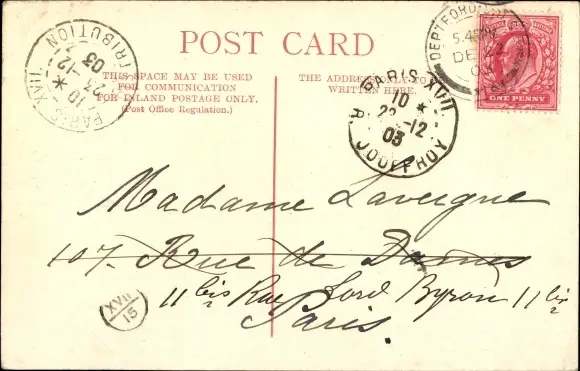 POST CARD
THIS SPACE MAY BE USED
FOR COMMUNICATION
FOR INLAND POSTAGE ONLY.
(Post Office Regulation.)
THE ADDRESS ONLY TO BE
WRITTEN HERE.
PARIS XVII
DISTRIBUTION
10 *
23 -12
03
PARIS XVII
10 *
22 -12
03
R. JOUFFROY
DEPTFORD
5.45PM
DE 21
ONE PENNY
Madame Lavergne
107. Rue de Dames
11 bis Rue Lord Byron 11 bis
Paris.
XVII
15